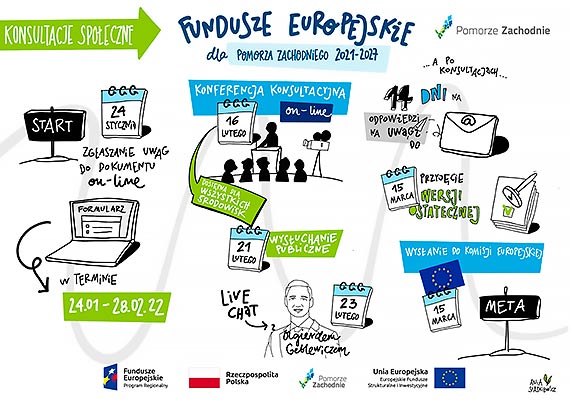 KONSULTACJE SPOŁECZNE
FUNDUSZE EUROPEJSKIE
dla POMORZA ZACHODNIEGO 2021-2027
Pomorze Zachodnie
START
24
STYCZNIA
ZGŁASZANIE UWAG
DO DOKUMENTU
on-line
FORMULARZ
W TERMINIE
24.01 - 28.02.22
KONFERENCJA KONSULTACYJNA
on-line
16
LUTEGO
DOSTĘPNA DLA
WSZYSTKICH
ŚRODOWISK
21
LUTEGO
WYSŁUCHANIE
PUBLICZNE
LIVE
CHAT
Z
Olgierdem
Geblewiczem
23
LUTEGO
... A PO
KONSULTACJACH...
14 DNI NA
ODPOWIEDZI
NA UWAGI
DO
15
MARCA
PRZYJĘCIE
WERSJI
OSTATECZNEJ
WYSŁANIE DO KOMISJI EUROPEJSKIEJ
15
MARCA
META
Fundusze
Europejskie
Program Regionalny
Rzeczpospolita
Polska
Pomorze
Zachodnie
Unia Europejska
Europejskie Fundusze
Strukturalne i Inwestycyjne
ANIA